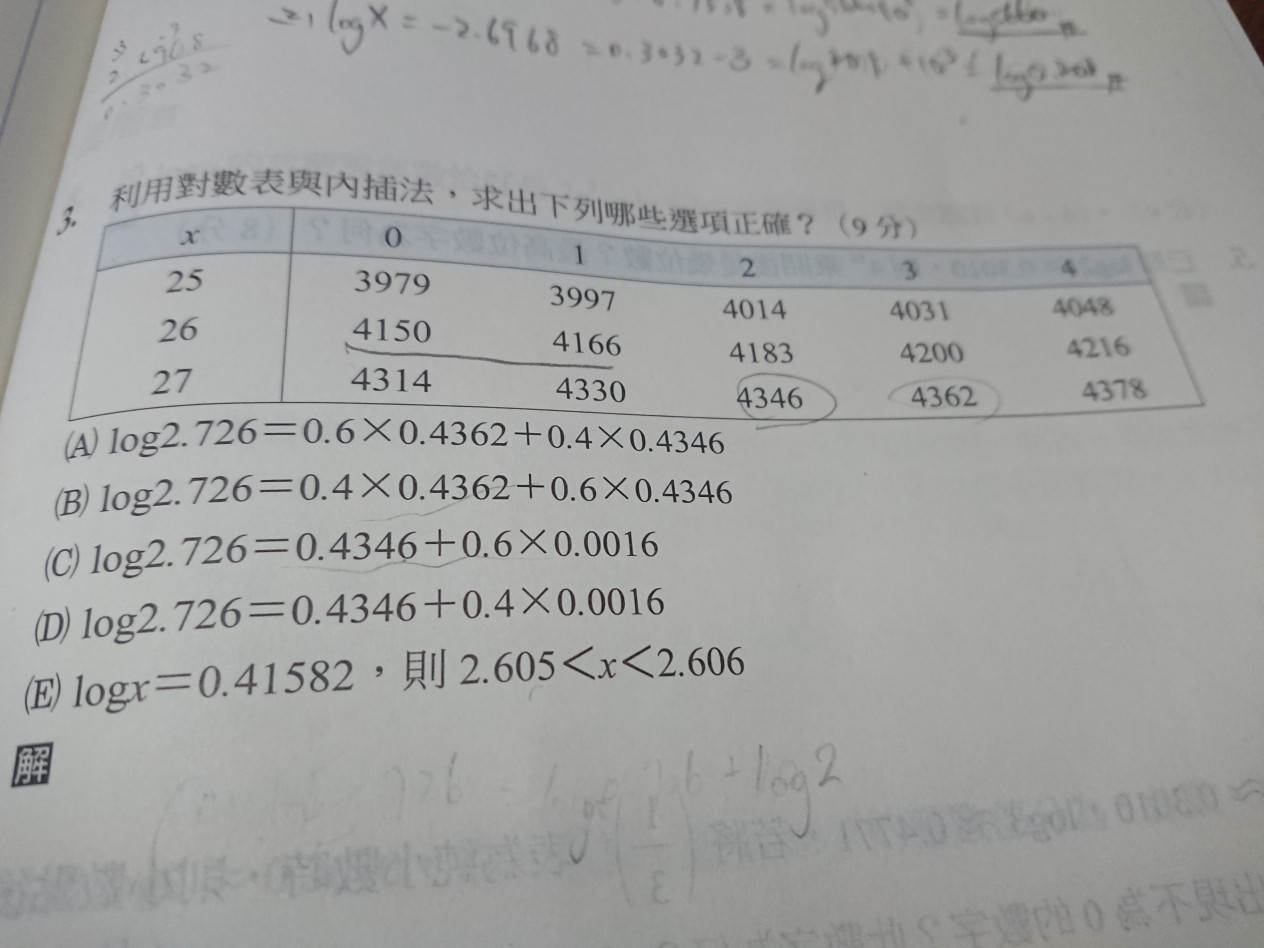 log x = -2.6968 = 0.3032 - 3
3. 利用對數表與內插法，求出下列哪些選項正確？（9 分）
x 0 1 2 3 4
25 3979 3997 4014 4031 4048
26 4150 4166 4183 4200 4216
27 4314 4330 4346 4362 4378
(A) log2.726＝0.6×0.4362＋0.4×0.4346
(B) log2.726＝0.4×0.4362＋0.6×0.4346
(C) log2.726＝0.4346＋0.6×0.0016
(D) log2.726＝0.4346＋0.4×0.0016
(E) logx＝0.41582，則 2.605＜x＜2.606
解
+ log2